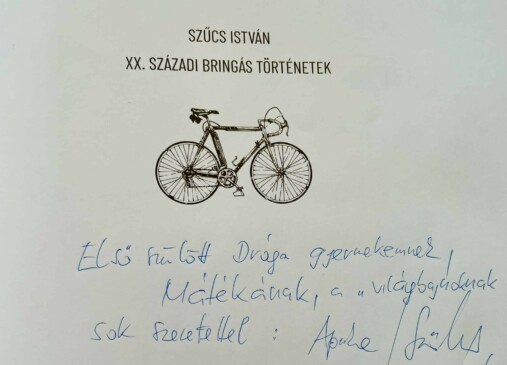 SZŰCS ISTVÁN
XX. SZÁZADI BRINGÁS TÖRTÉNETEK
Első szülött Drága gyermekemnek,
Mátékának, a „világbajnoknak
sok szeretettel : Apuka / Szűcs